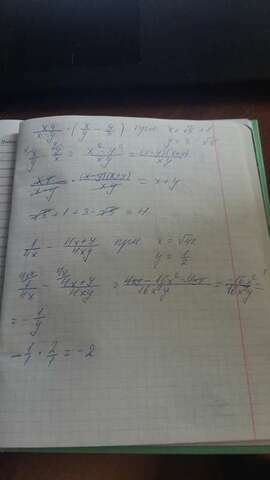 xy/(x-y) · (x/y - y/x) при x = √8 + 1
y = 3 - √8
x/y - y/x = (x² - y²)/xy = (x-y)(x+y)/xy
xy/(x-y) · (x-y)(x+y)/xy = x+y
√8 + 1 + 3 - √8 = 4
1/4x - (4x+y)/4xy при x = √42
y = 1/2
1/4x - (4x+y)/4xy = = -16x²/16x²y =
= -1/y
-1/1 · 2/1 = -2